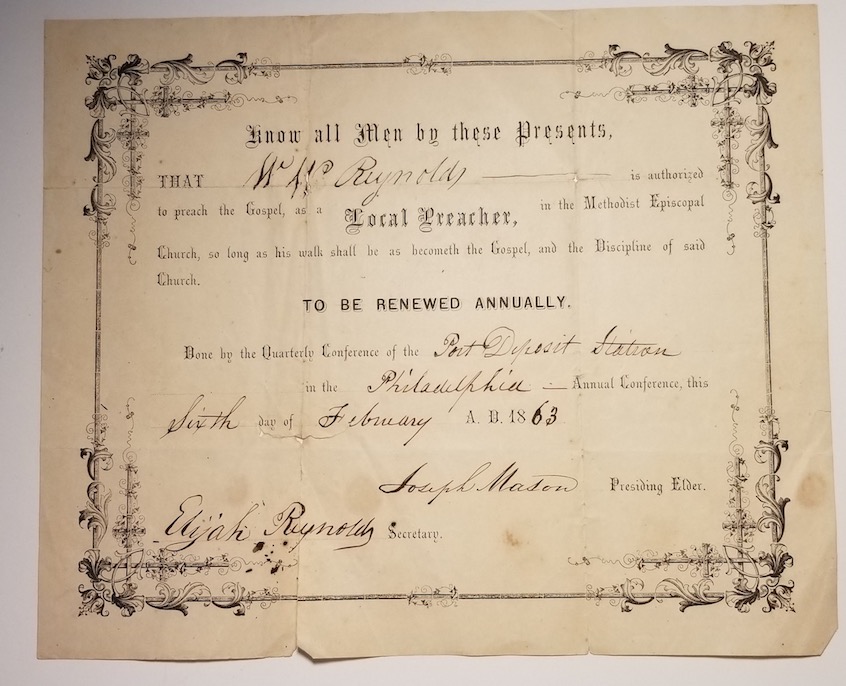 Know all Men by these Presents,
THAT Wm Reynolds is authorized
to preach the Gospel, as a Local Preacher, in the Methodist Episcopal
Church, so long as his walk shall be as becometh the Gospel, and the Discipline of said
Church.
TO BE RENEWED ANNUALLY.
Done by the Quarterly Conference of the Port Deposit Station
in the Philadelphia Annual Conference, this
Sixth day of February A. D. 1863
Joseph Mason Presiding Elder.
Elijah Reynolds Secretary.